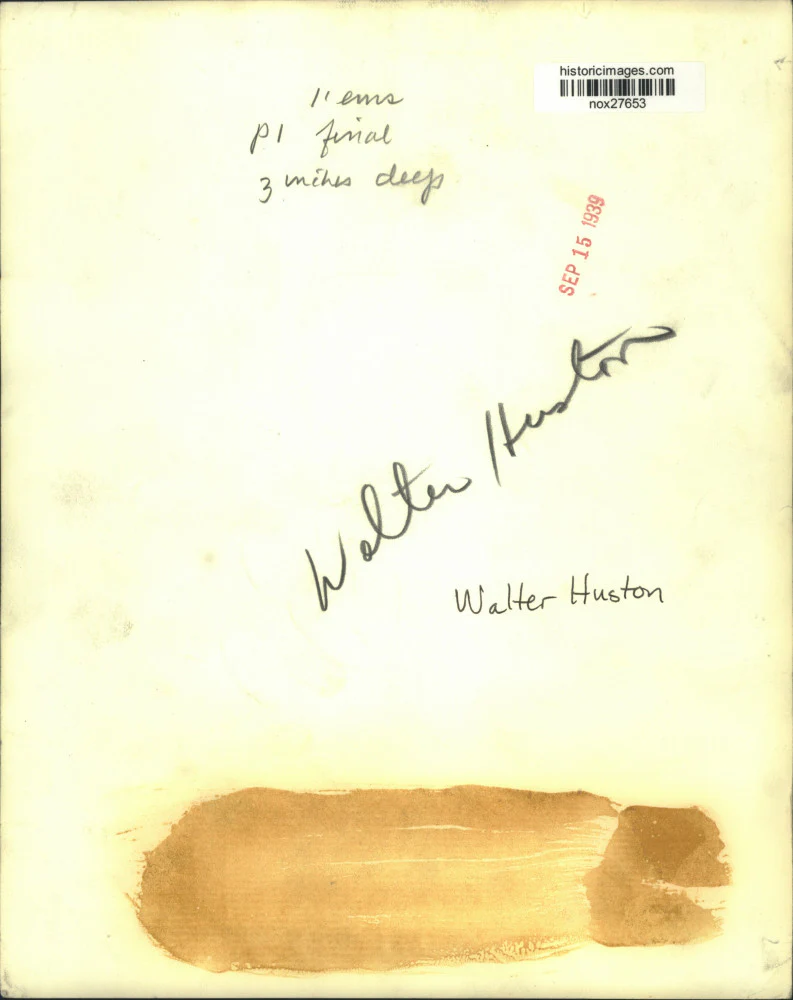 historicimages.com
nox27653
11 ems
p1 final
3 inches deep
SEP 15 1939
Walter Huston
Walter Huston